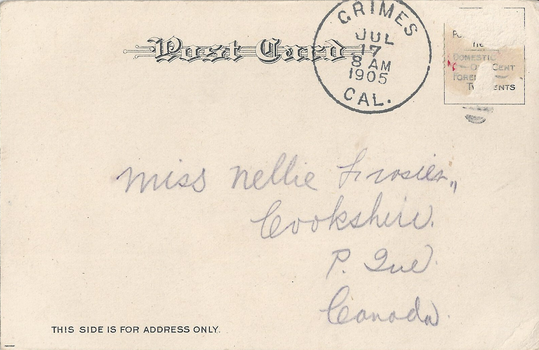 Post Card
GRIMES
JUL
17
8 AM
1905
CAL.
DOMESTIC
CENT
CENTS
Miss Nellie
Cookshire.
P. Que.
Canada.
THIS SIDE IS FOR ADDRESS ONLY.